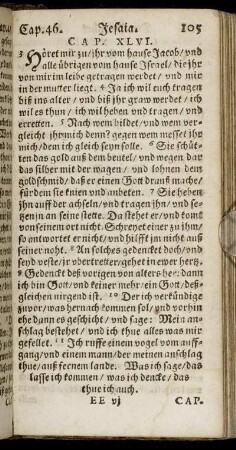 Cap. 46. Jesaia. 105
CAP. XLVI.
3 Höret mir zu/ jhr vom hause Jacob/ vnd
alle übrigen vom hause Israel/ die jhr
von mir im leibe getragen werdet/ vnd mir in
der mutter liegt. 4 Ja ich wil euch tragen
biß ins alter/ vnd biß jhr graw werdet/ ich
wil es thun/ ich wil heben vnd tragen/ vnd
erretten. 5 Nach wem bildet/ vnd wem ver-
gleicht jhr mich denn? gegen wem messet jhr
mich/ dem ich gleich seyn solle. 6 Sie schüt-
ten das gold auß dem beutel/ vnd wegen dar
das silber mit der wagen/ vnd lohnen dem
goldschmid/ daß er einen Gott drauß mache/
für dem sie knien vnd anbeten. 7 Sie heben
jhn auff der achseln/ vnd tragen jhn/ vnd se-
tzen jn an seine stette. Da stehet er/ vnd komt
von seinem ort nicht. Schreyet einer zu jhm/
so antwortet er nicht/ vnd hilfft jn nicht auß
seiner noht. 8 An solches gedencket doch/ vnd
seyd veste/ jr vbertretter/ gehet in ewer hertz.
9 Gedenckt deß vorigen von alters her: dann
ich bin Gott/ vnd keiner mehr/ ein Gott/ deß-
gleichen nirgend ist. 10 Der ich verkündige
zuvor/ was hernach kommen sol/ vnd vorhin
ehe dann es geschicht/ vnd sage: Mein an-
schlag bestehet/ vnd ich thue alles was mir
gefellet. 11 Ich ruffe einem vogel vom auff-
gang/ vnd einem mann/ der meinen anschlag
thue/ auß fernem lande. Was ich sage/ das
lasse ich kommen/ was ich dencke/ das
thue ich auch.
EE vj CAP.